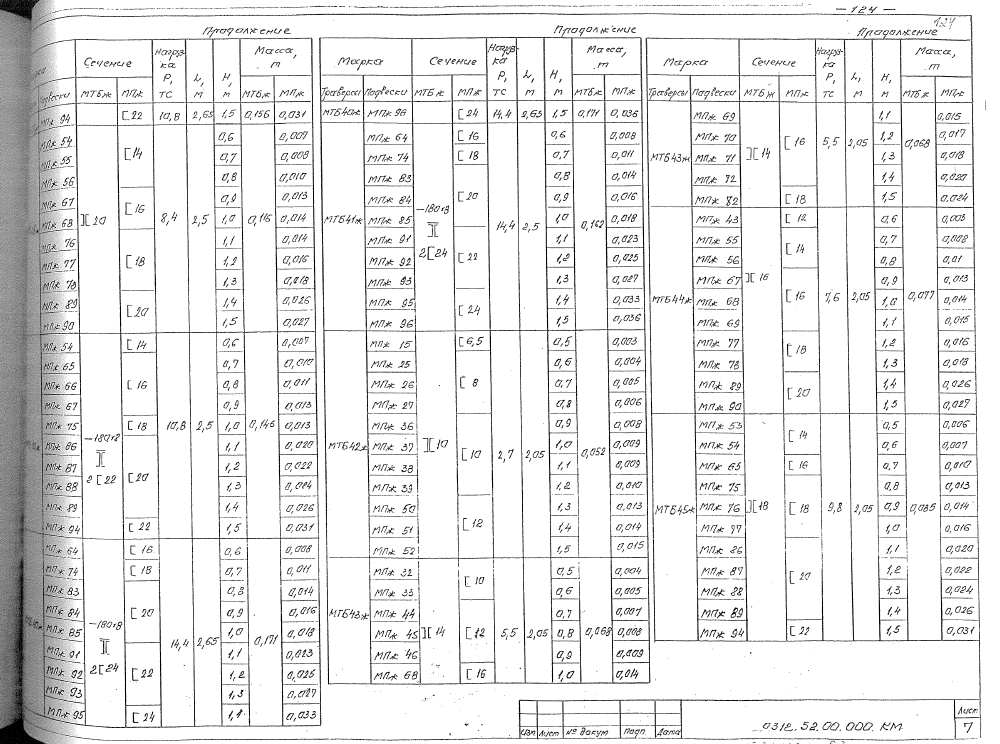 — 124 —
127
Продолжение
Продолжение
Продолжение
Сечение Нагрузка P, тс L, м H, м Масса, т
Подвески МТБж МПж МТБж МПж
МПж 94 [22 10,8 2,65 1,5 0,156 0,031
МПж 54 ][20 [14 8,4 2,5 0,6 0,115 0,007
МПж 55 0,7 0,008
МПж 56 0,8 0,010
МПж 67 [16 0,9 0,013
МПж 68 1,0 0,014
МПж 76 [18 1,1 0,014
МПж 77 1,2 0,016
МПж 78 1,3 0,018
МПж 89 [20 1,4 0,026
МПж 90 1,5 0,027
МПж 54 —180×8 ][ 2[22 [14 10,8 2,5 0,6 0,146 0,007
МПж 65 [16 0,7 0,010
МПж 66 0,8 0,011
МПж 67 0,9 0,013
МПж 75 [18 1,0 0,013
МПж 86 [20 1,1 0,020
МПж 87 1,2 0,022
МПж 88 1,3 0,024
МПж 89 1,4 0,026
МПж 94 [22 1,5 0,031
МПж 64 —180×8 ][ 2[24 [16 14,4 2,65 0,6 0,171 0,008
МПж 74 [18 0,7 0,011
МПж 83 [20 0,8 0,014
МПж 84 0,9 0,016
МПж 85 1,0 0,018
МПж 91 [22 1,1 0,023
МПж 92 1,2 0,025
МПж 93 1,3 0,027
МПж 95 [24 1,4 0,033
Марка Сечение Нагрузка P, тс L, м H, м Масса, т
Траверсы Подвески МТБж МПж МТБж МПж
МТБ40ж МПж 96 [24 14,4 2,65 1,5 0,171 0,036
МТБ41ж МПж 64 —180×8 ][ 2[24 [16 14,4 2,5 0,6 0,162 0,008
МПж 74 [18 0,7 0,011
МПж 83 [20 0,8 0,014
МПж 84 0,9 0,016
МПж 85 1,0 0,018
МПж 91 [22 1,1 0,023
МПж 92 1,2 0,025
МПж 93 1,3 0,027
МПж 95 [24 1,4 0,033
МПж 96 1,5 0,036
МТБ42ж МПж 15 ][10 [6,5 2,7 2,05 0,5 0,052 0,003
МПж 25 [8 0,6 0,004
МПж 26 0,7 0,005
МПж 27 0,8 0,006
МПж 36 [10 0,9 0,008
МПж 37 1,0 0,009
МПж 38 1,1 0,009
МПж 39 1,2 0,010
МПж 50 [12 1,3 0,013
МПж 51 1,4 0,014
МПж 52 1,5 0,015
МТБ43ж МПж 32 ][14 [10 5,5 2,05 0,5 0,068 0,004
МПж 33 0,6 0,005
МПж 44 [12 0,7 0,007
МПж 45 0,8 0,008
МПж 46 0,9 0,009
МПж 68 [16 1,0 0,014
Марка Сечение Нагрузка P, тс L, м H, м Масса, т
Траверсы Подвески МТБж МПж МТБж МПж
МТБ43ж МПж 69 ][14 [16 5,5 2,05 1,1 0,068 0,015
МПж 70 1,2 0,017
МПж 71 1,3 0,018
МПж 72 1,4 0,020
МПж 82 [18 1,5 0,024
МТБ44ж МПж 43 ][16 [12 7,6 2,05 0,6 0,077 0,005
МПж 55 [14 0,7 0,008
МПж 56 0,8 0,01
МПж 67 [16 0,9 0,013
МПж 68 1,0 0,014
МПж 69 1,1 0,015
МПж 77 [18 1,2 0,016
МПж 78 1,3 0,018
МПж 89 [20 1,4 0,026
МПж 90 1,5 0,027
МТБ45ж МПж 53 ][18 [14 9,8 2,05 0,5 0,085 0,006
МПж 54 0,6 0,007
МПж 65 [16 0,7 0,010
МПж 75 [18 0,8 0,013
МПж 76 0,9 0,014
МПж 77 1,0 0,016
МПж 86 [20 1,1 0,020
МПж 87 1,2 0,022
МПж 88 1,3 0,024
МПж 89 1,4 0,026
МПж 94 [22 1,5 0,031
Изм Лист № докум Подп. Дата
0312.52.00.000.КМ
Лист
7